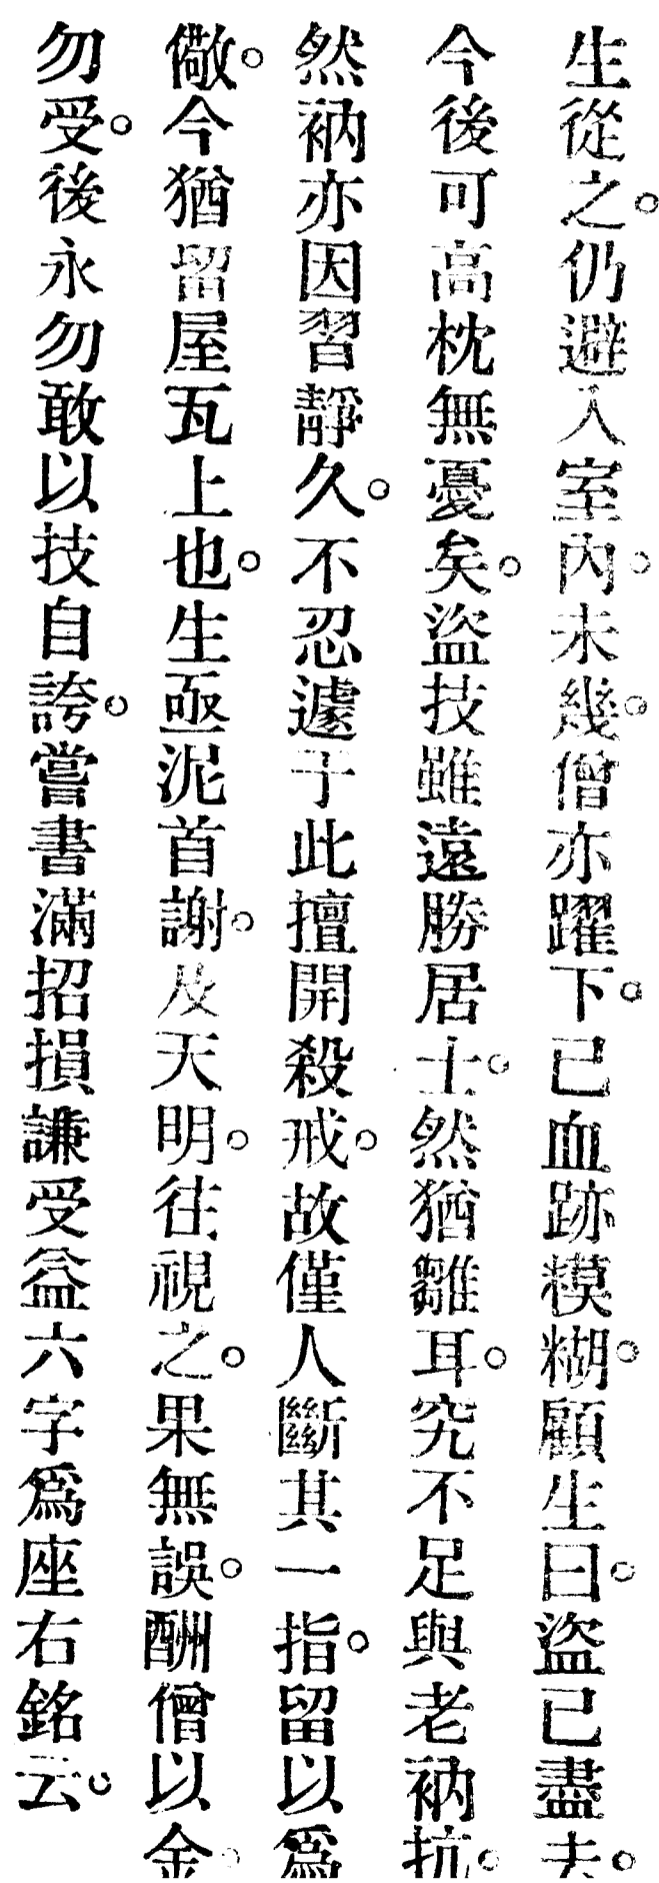 生從之。仍避入室內。未幾。僧亦躍下。已血跡模糊。顧生曰。盜已盡去。
今後可高枕無憂矣。盜技雖遠勝居士。然猶雛耳。究不足與老衲抗。
然衲亦因習靜久。不忍遽于此擅開殺戒。故僅人斷其一指。留以爲
儆。今猶留屋瓦上也。生亟泥首謝。及天明。往視之。果無誤。酬僧以金。
勿受。後永勿敢以技自誇。嘗書滿招損謙受益六字爲座右銘云。